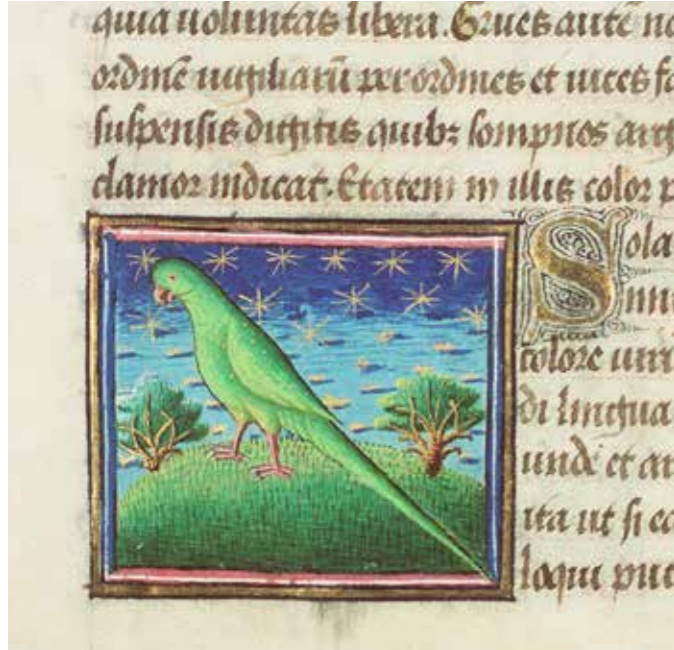 quia uoluntas libera. Grues autē no
ordinē uigiliarū per ordines et uices fa
suspensis digitis quibꝫ sompnos arg
clamor indicat. Etatem in illis color p
Sola
Inni
colore uiri
di lingua
unde et
ita ut si ea
loqui put